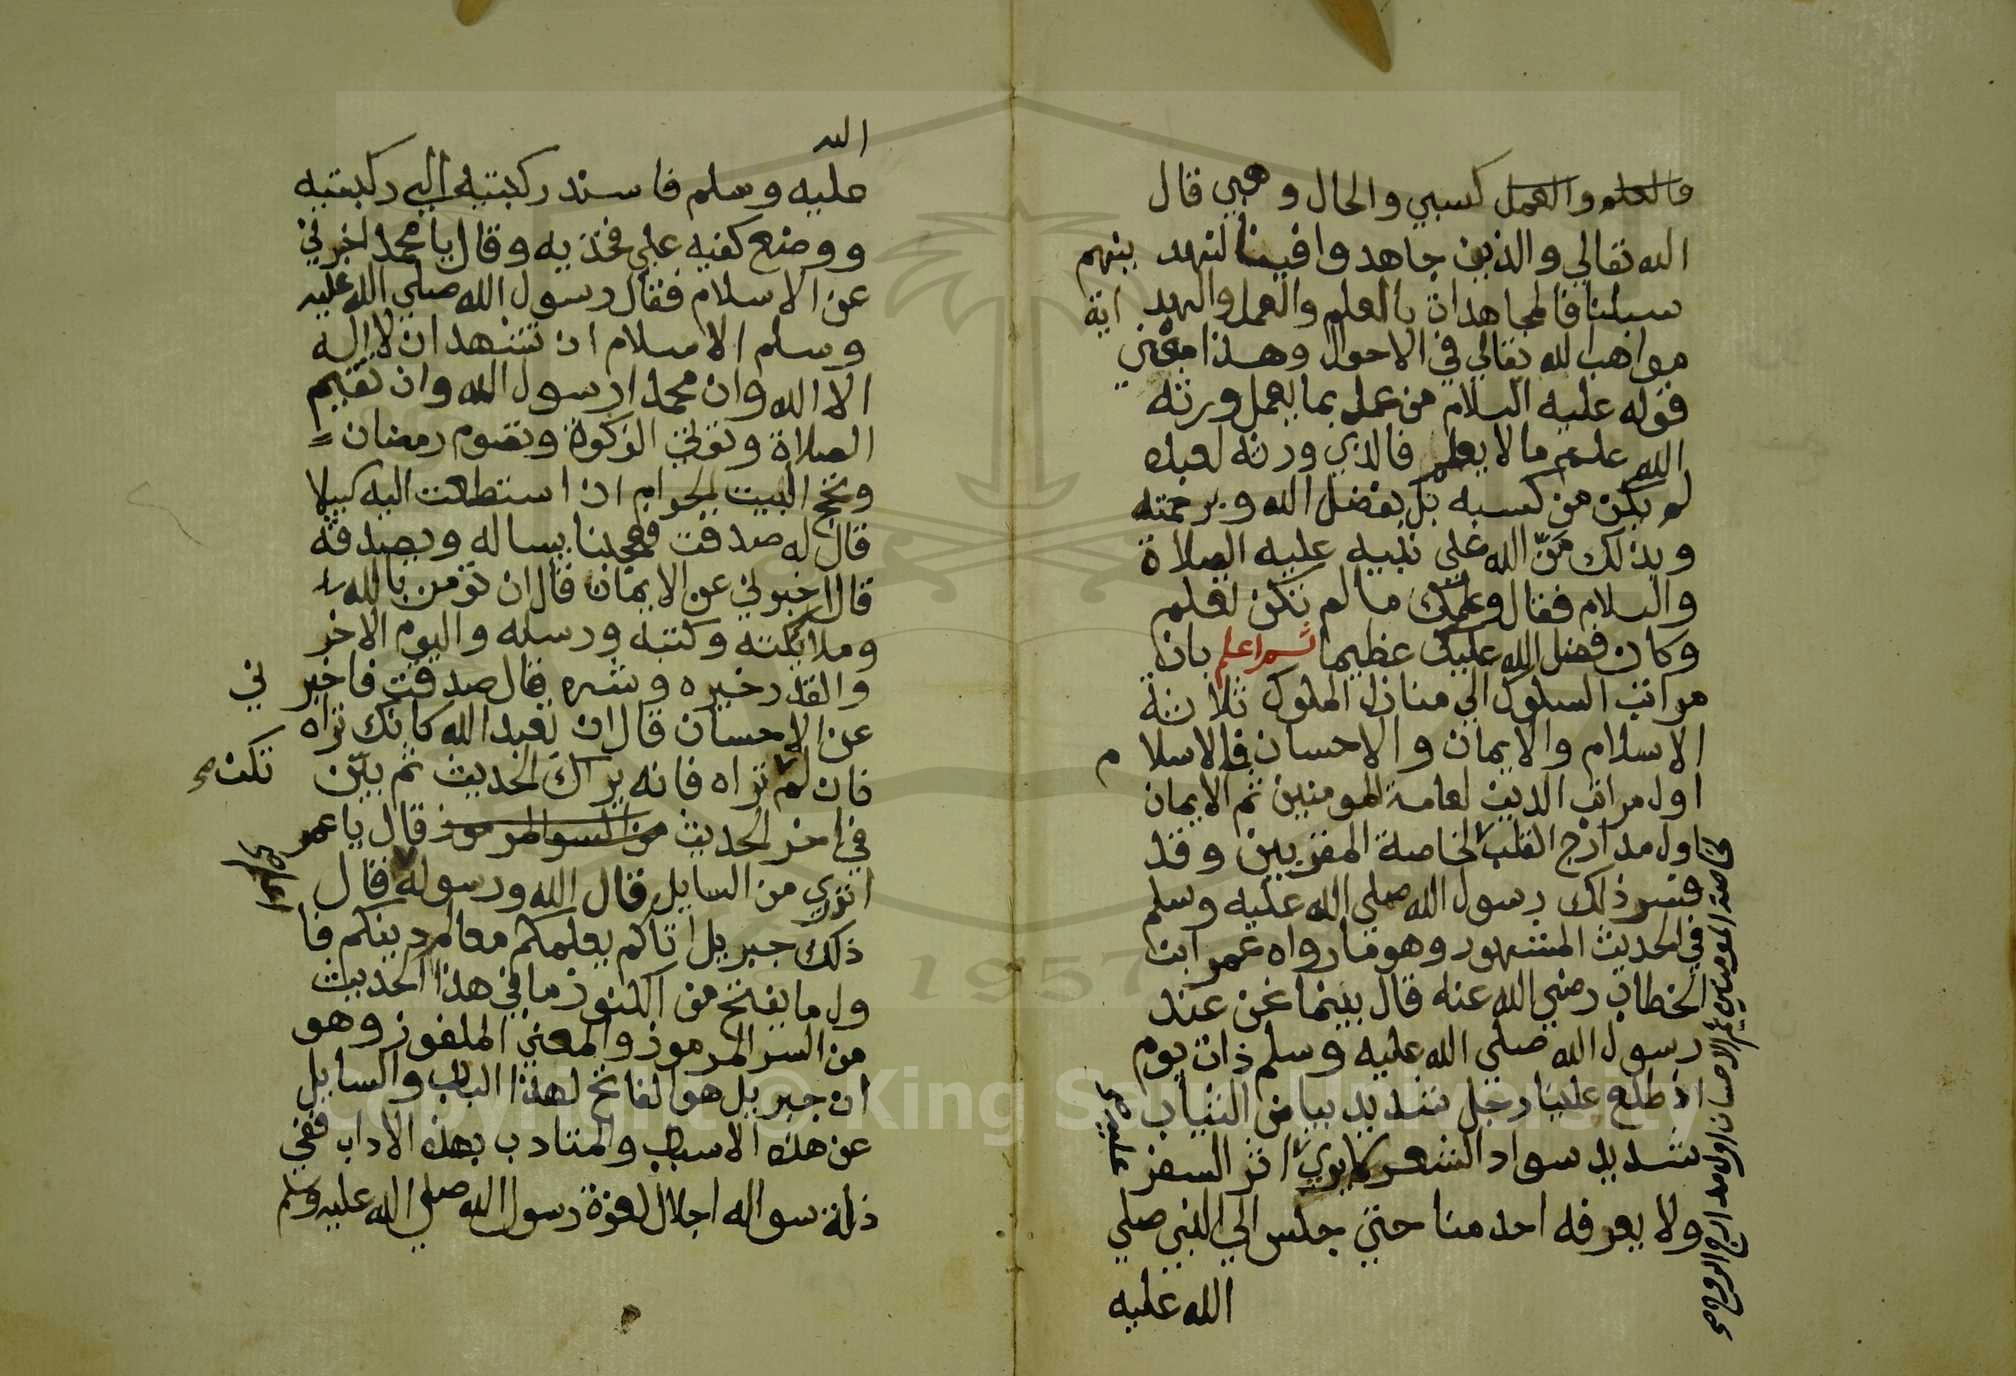 فالعلم والعمل كسبي والحال وهبي قال
الله تعالي والذين جاهدوا فينا لنهدينهم
سبلنا فالمجاهدات بالعلم والعمل والهداية
مواهب الله تعالي في الاحوال وهذا معني
قوله عليه السلام من عمل بما يعمل ورثه
الله علم ما لا يعلم فالذي ورثه لعبده
لم يكن من كسبه بل بفضل الله وبرحمته
وبذلك منّ الله علي نبيه عليه الصلاة
والسلام فقال وعلمك ما لم تكن تعلم
وكان فضل الله عليك عظيما ثم اعلم بان
مراتب السلوك الي منازل الملوك ثلاثة
الاسلام والايمان والاحسان فالاسلام
اول مراتب الدين لعامة المومنين ثم الايمان
اول مدارج القلب لخاصة المقربين وقد
فسر ذلك رسول الله صلي الله عليه وسلم
في الحديث المشهور وهو ما رواه عمر ابن
الخطاب رضي الله عنه قال بينما نحن عند
رسول الله صلي الله عليه وسلم ذات يوم
اذ طلع علينا رجل شديد بياض الثياب
شديد سواد الشعر لا يري اثر السفر
عليه صح
ولا يعرفه احد منا حتي جلس الي النبي صلي
الله عليه
خاصة المومنين ثم الاحسان اول مدارج الروح صح
الله
عليه وسلم فاسند ركبتيه الي ركبتيه
ووضع كفيه علي فخذيه وقال يا محمد اخبرني
عن الاسلام فقال رسول الله صلي الله عليه
وسلم الاسلام ان تشهد ان لا اله
الا الله وان محمدا رسول الله وان تقيم
الصلاة وتوتي الزكوة وتصوم رمضان
وتحج البيت الحرام ان استطعت اليه سبيلا
قال له صدقت فعجبنا يساله ويصدقه
قال اخبرني عن الايمان قال ان تومن بالله
وملايكته وكتبه ورسله واليوم الاخر
والقدر خيره وشره قال صدقت فاخبرني
عن الاحسان قال ان تعبد الله كانك تراه
فان لم تراه فانه يراك الحديث ثم بيّن
تكن صح
في اخر الحديث من السو المرموز قال يا عمر
اتدري من السايل قال الله ورسوله قال
ذلك جبريل اتاكم يعلمكم معالم دينكم فا
ول ما يفتح من الكنوز ما في هذا الحديث
من السر المرموز والمعني الملفوز وهو
ان جبريل هو الفاتح لهذا الباب والسايل
عن هذه الاسباب والمتادب بهذه الاداب ففي
ذلة سواله اجلال لعزة رسول الله صلي الله عليه وسلم